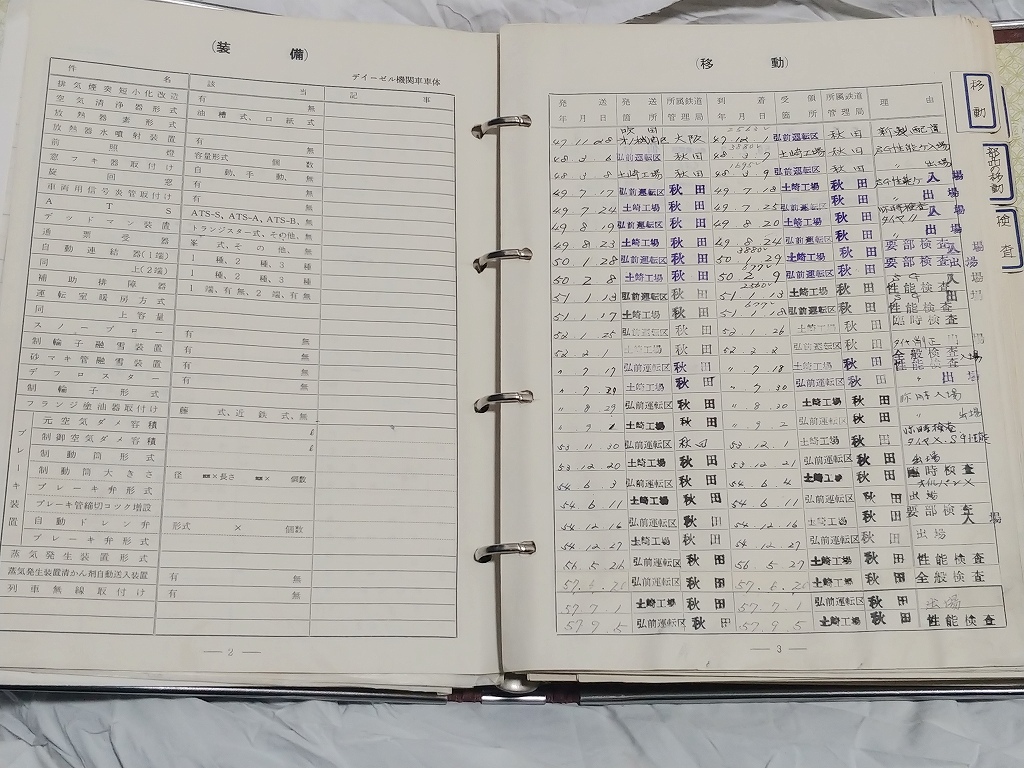 (装 備)
デイーゼル機関車車体
件 名 該 当 記 事
排気煙突短小化改造 有 無
空気清浄器形式 油槽式、ロ紙式
放熱器素形式
放熱器水噴射装置 有 無
前照燈 容量形式 個数
窓フキ器取付け 自動、手動、無
旋回窓 有 無
車両用信号炎管取付け 有 無
ATS ATS-S, ATS-A, ATS-B, 無
デッドマン装置 トランジスター式、その他、無
過電受器 峯式、その他、無
自動連結器(1端) 1種、2種、3種
同上(2端) 1種、2種、3種
補助排障器 1端、有無、2端、有無
運転室暖房方式
同上容量
スノープロー 有 無
制輪子融雪装置 有 無
砂マキ管融雪装置 有 無
デフロスター 有 無
制輪子形式
フランジ塗油器取付け 藤式、近鉄式、無
ブレーキ装置
元空気ダメ容積 ℓ
制御空気ダメ容積 ℓ
制動筒形式
制動筒大きさ 径 ㎜×長さ ㎜× 個数
ブレーキ弁形式
ブレーキ管締切コック増設
自動ドレン弁 形式 × 個数
ブレーキ弁形式
蒸気発生装置形式
蒸気発生装置清かん剤自動送入装置 有 無
列車無線取付け 有 無
— 2 —
(移 動)
発送年月日 発送箇所 所属鉄道管理局 到着年月日 受領箇所 所属鉄道管理局 理由
大阪 弘前運転区 秋田 新製配置
48.3.6 弘前運転区 秋田 48.3.7 土崎工場 秋田
48.3.8 土崎工場 秋田 48.3.9 弘前運転区 秋田 〃 出場
49.7.17 弘前運転区 秋田 49.7.18 土崎工場 秋田 入場
49.7.24 土崎工場 秋田 49.7.25 弘前運転区 秋田 出場
49.8.19 弘前運転区 秋田 49.8.20 土崎工場 秋田 臨時検査 入場
49.8.23 土崎工場 秋田 49.8.24 弘前運転区 秋田 〃 出場
50.1.28 弘前運転区 秋田 50.1.29 土崎工場 秋田 要部検査 入場
50.2.8 土崎工場 秋田 50.2.9 弘前運転区 秋田 要部検査 出場
51.1.13 弘前運転区 秋田 51.1.13 土崎工場 秋田 性能検査 入場
51.1.17 土崎工場 秋田 51.1.18 弘前運転区 秋田 性能検査 出場
52.1.25 弘前運転区 秋田 52.1.26 土崎工場 秋田 臨時検査
52.2.1 土崎工場 秋田 52.2.2 弘前運転区 秋田
〃.7.17 弘前運転区 秋田 〃.7.18 土崎工場 秋田 全般検査 性能検査 入場
〃.7.29 土崎工場 秋田 〃.7.30 弘前運転区 秋田 〃 出場
〃.8.29 弘前運転区 秋田 〃.8.30 土崎工場 秋田 臨時入場
土崎工場 秋田 〃.9.2 弘前運転区 秋田 〃 出場
53.11.30 弘前運転区 秋田 53.12.1 土崎工場 秋田 臨時検査
53.12.20 土崎工場 秋田 53.12.21 弘前運転区 秋田 出場
54.6.3 弘前運転区 秋田 54.6.4 土崎工場 秋田 臨時検査
54.6.11 土崎工場 秋田 54.6.11 弘前運転区 秋田 出場
54.12.16 弘前運転区 秋田 54.12.16 土崎工場 秋田 要部検査 入場
54.12.27 土崎工場 秋田 54.12.27 弘前運転区 秋田 出場
56.5.26 弘前運転区 秋田 56.5.27 土崎工場 秋田 性能検査
57.6.26 弘前運転区 秋田 57.6.26 土崎工場 秋田 全般検査
57.7.1 土崎工場 秋田 57.7.1 弘前運転区 秋田 出場
57.9.5 弘前運転区 秋田 57.9.5 土崎工場 秋田 性能検査
— 3 —
移動
検査